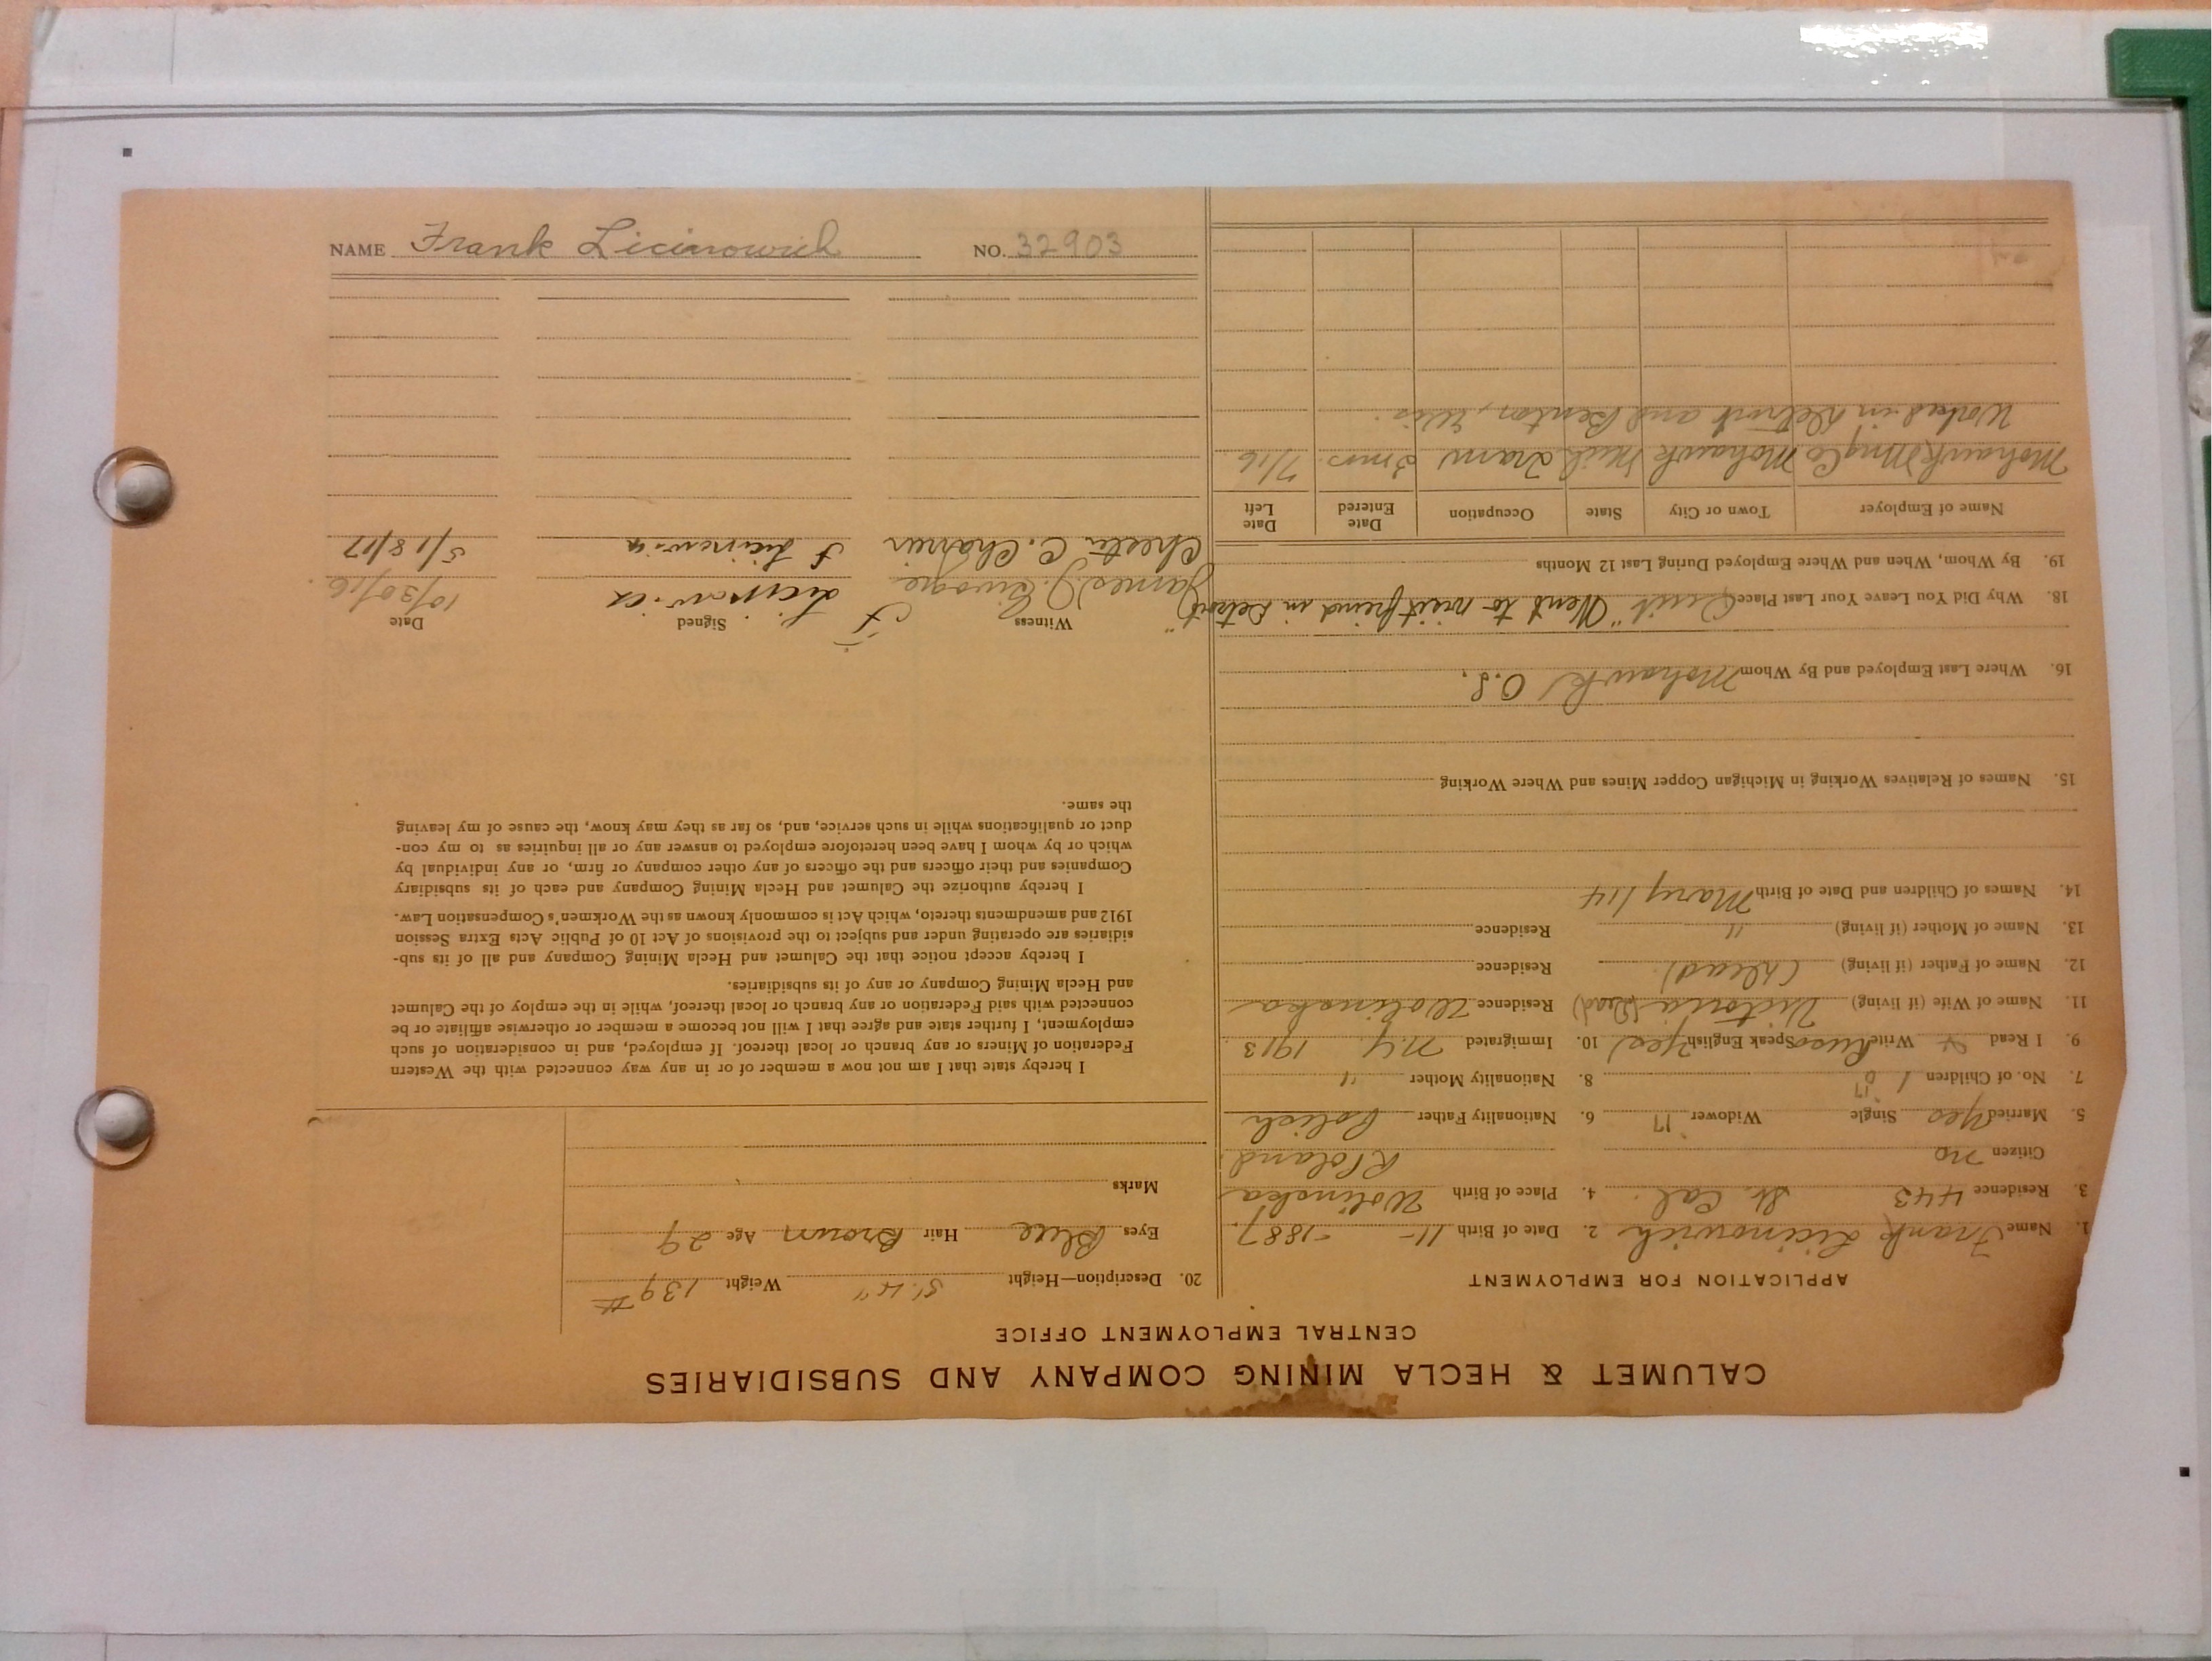 NAME Frank Licinowich NO. 32903
CALUMET & HECLA MINING COMPANY AND SUBSIDIARIES
CENTRAL EMPLOYMENT OFFICE
APPLICATION FOR EMPLOYMENT
1. Name Frank Licinowich 2. Date of Birth 11- -1887
3. Residence 443 St. Cal. 4. Place of Birth Wolinska
Citizen no R Poland
5. Married yes Single Widower 17 6. Nationality Father Polish
7. No. of Children 1 8. Nationality Mother "
9. I Read Write Russ Speak English yes 10. Immigrated N.Y. 1913
11. Name of Wife (if living) Victoria (Dead) Residence Wolinska
12. Name of Father (if living) (Dead) Residence
13. Name of Mother (if living) " Residence
14. Names of Children and Date of Birth Mary 14
15. Names of Relatives Working in Michigan Copper Mines and Where Working
16. Where Last Employed and By Whom Mohawk O.S.
18. Why Did You Leave Your Last Place Quit "Went to visit friend in Detroit"
19. By Whom, When and Where Employed During Last 12 Months
Name of Employer Town or City State Occupation Date Entered Date Left
Mohawk Mng Co Mohawk Mich Tram 3 mos. 7/16
Worked in Detroit and Benton, Wis.
20. Description—Height 5'.4" Weight 139#
Eyes Blue Hair Brown Age 29
Marks
I hereby state that I am not now a member of or in any way connected with the Western
Federation of Miners or any branch or local thereof. If employed, and in consideration of such
employment, I further state and agree that I will not become a member or otherwise affiliate or be
connected with said Federation or any branch or local thereof, while in the employ of the Calumet
and Hecla Mining Company or any of its subsidiaries.
I hereby accept notice that the Calumet and Hecla Mining Company and all of its sub-
sidiaries are operating under and subject to the provisions of Act 10 of Public Acts Extra Session
1912 and amendments thereto, which Act is commonly known as the Workmen's Compensation Law.
I hereby authorize the Calumet and Hecla Mining Company and each of its subsidiary
Companies and their officers and the officers of any other company or firm, or any individual by
which or by whom I have been heretofore employed to answer any or all inquiries as to my con-
duct or qualifications while in such service, and, so far as they may know, the cause of my leaving
the same.
Witness Signed Date
James J. F Licinowich 10/30/16.
Chester C. F Licinowich 5/18/17